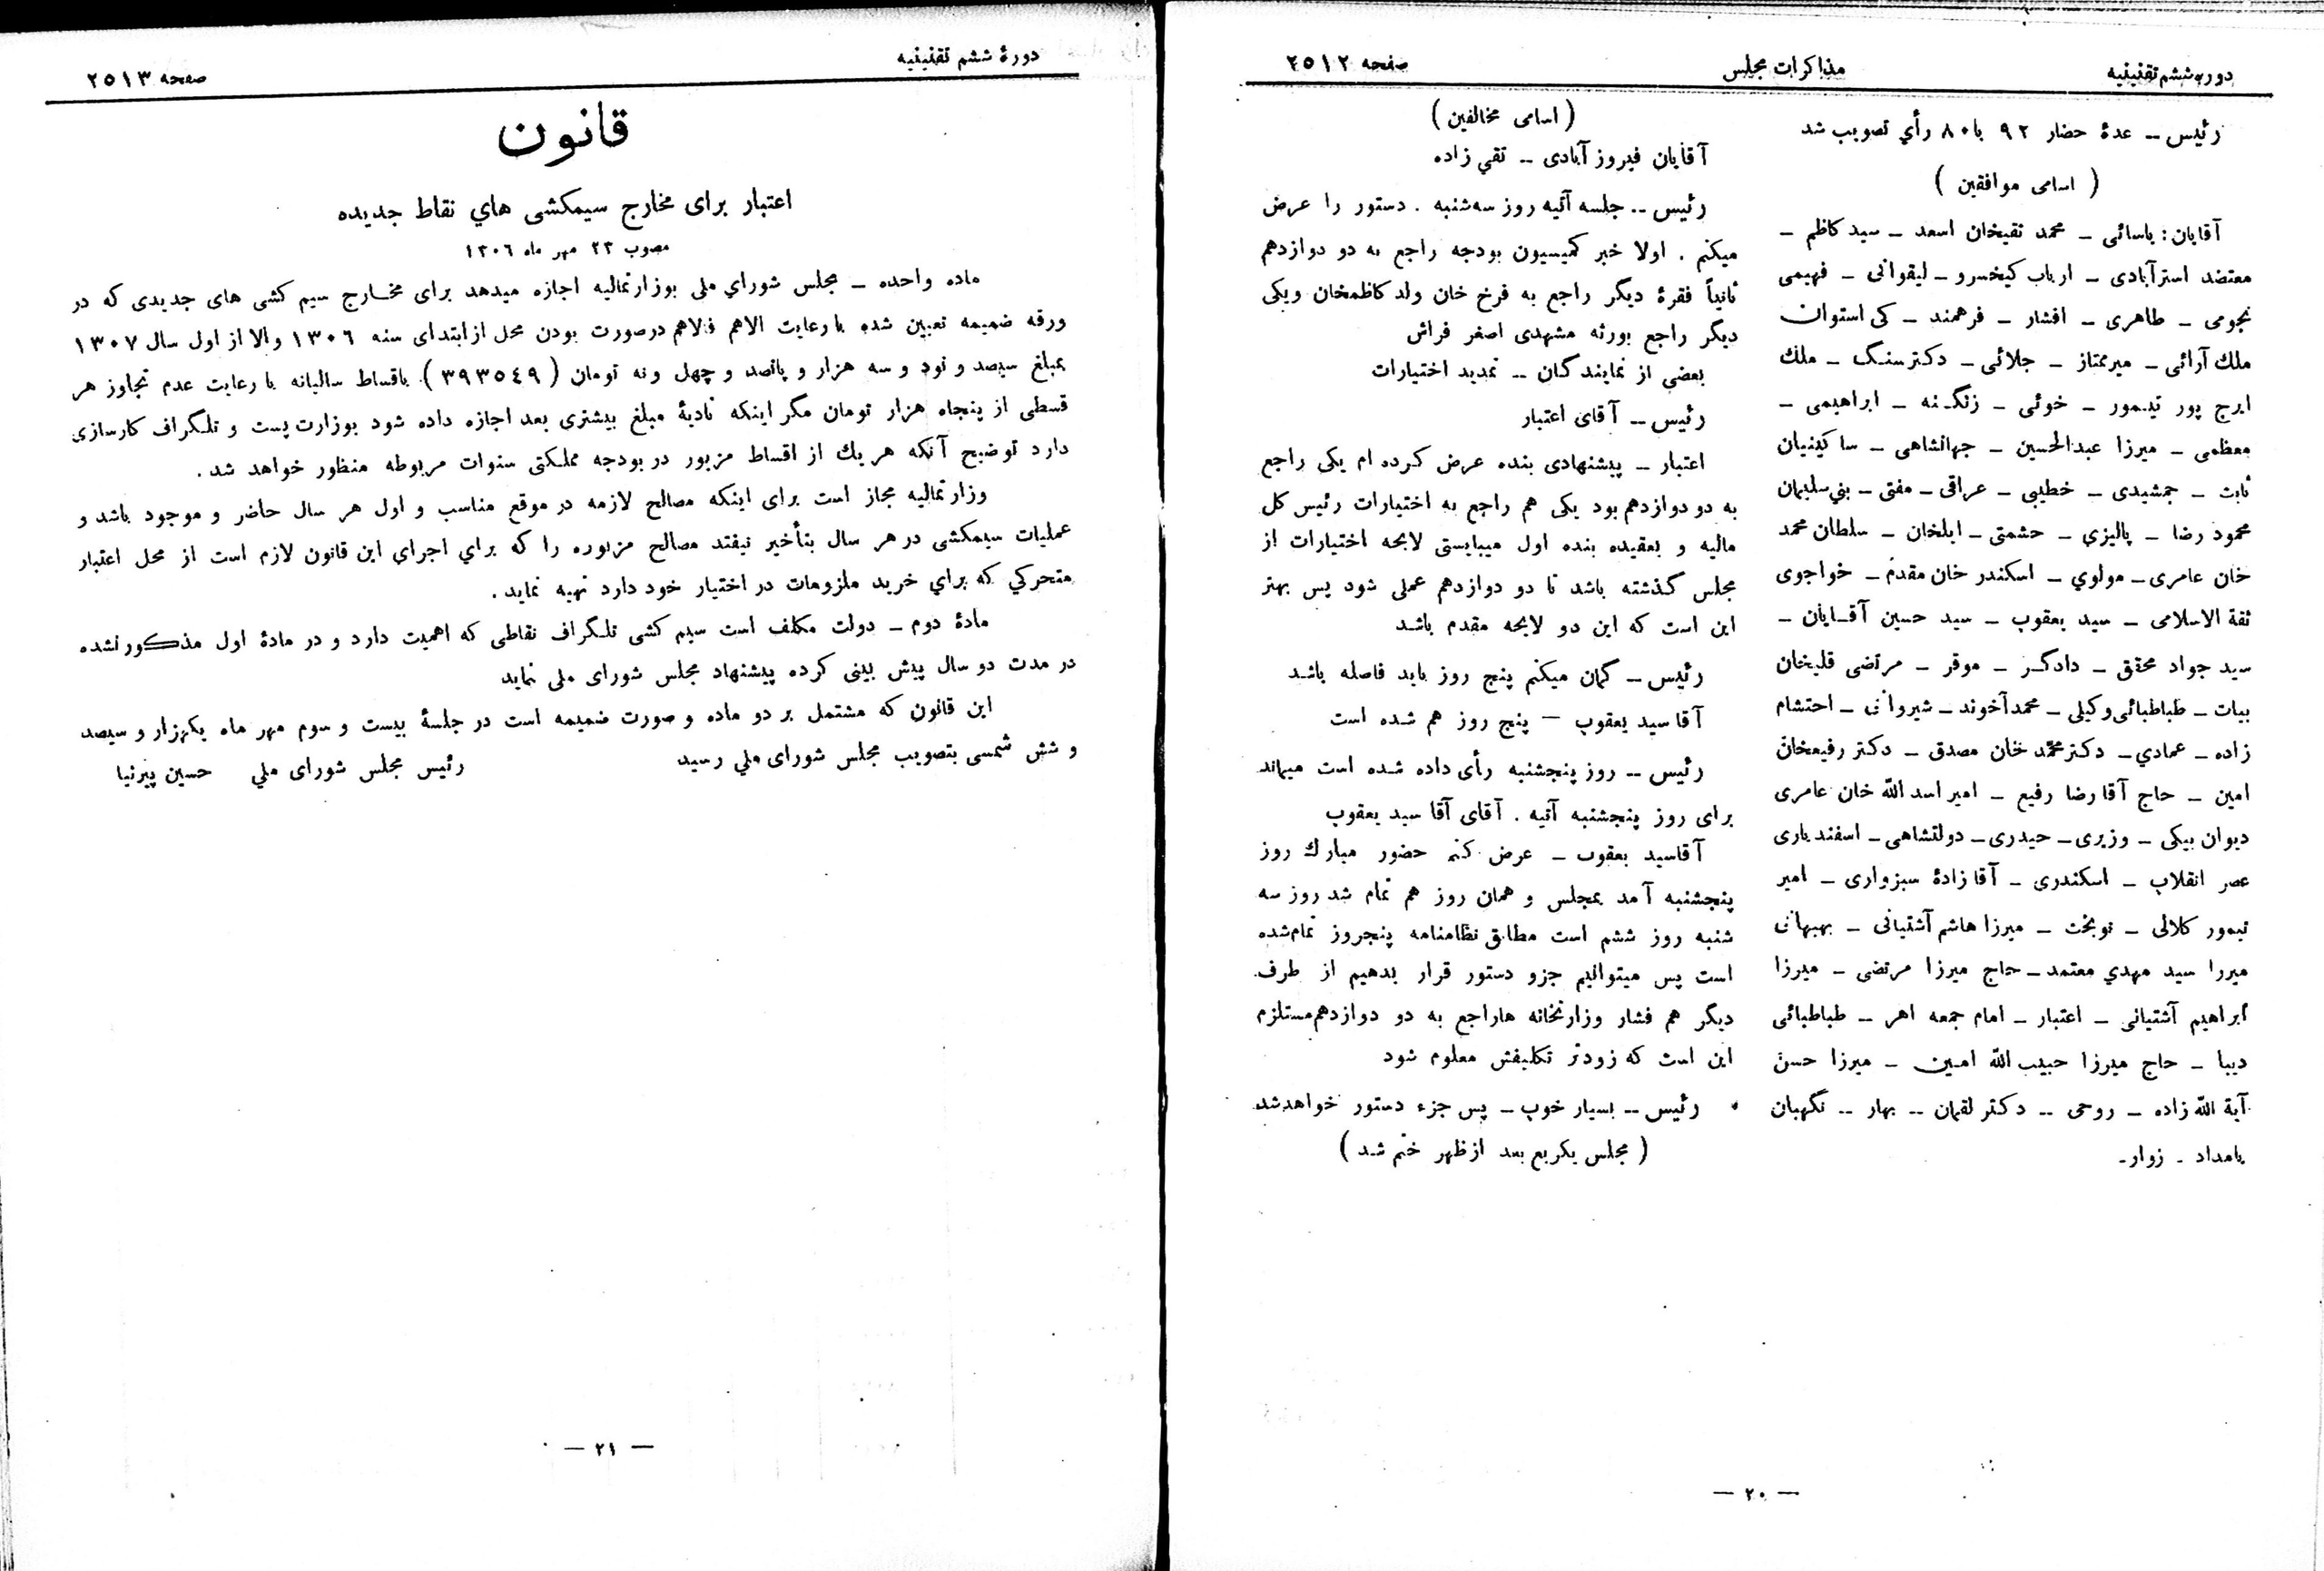 دوره ششم تقنینیه
مذاکرات مجلس
صفحه ۲۵۱۲
رئیس ــ عدهٔ حضار ۹۲ با ۸۰ رأي تصویب شد
( اسامی موافقین )
آقایان : یاسائی ــ محمد تقیخان اسعد ــ سید کاظم ــ
معتضد استرآبادی ــ ارباب کیخسرو ــ لیقوانی ــ فهیمی
نجومی ــ طاهری ــ افشار ــ فرهمند ــ کی استوان
ملك آرائی ــ میرممتاز ــ جلائی ــ دکتر سنگ ــ ملك
ایرج پور تیمور ــ خوئی ــ زنگنه ــ ابراهیمی ــ
معظمی ــ میرزا عبدالحسین ــ جهانشاهی ــ ساکینیان
ثابت ــ جمشیدی ــ خطیبی ــ عراقی ــ مفتی ــ بني سلیمان
محمود رضا ــ پالیزي ــ حشمتی ــ ایلخان ــ سلطان محمد
خان عامری ــ مولوي ــ اسکندر خان مقدم ــ خواجوی
ثقة الاسلامی ــ سید یعقوب ــ سید حسین آقایان ــ
سید جواد محقق ــ دادگر ــ موقر ــ مرتضی قلیخان
بیات ــ طباطبائی وکیلی ــ محمد آخوند ــ شیروانی ــ احتشام
زاده ــ عمادي ــ دکتر محمد خان مصدق ــ دکتر رفیعخان
امین ــ حاج آقا رضا رفیع ــ امیر اسد الله خان عامری
دیوان بیکی ــ وزیری ــ حیدری ــ دولتشاهی ــ اسفندیاری
عصر انقلاب ــ اسکندری ــ آقا زادهٔ سبزواری ــ امیر
تیمور کلالی ــ نوبخت ــ میرزا هاشم آشتیانی ــ بهبهانی
میرزا سید مهدي معتمد ــ حاج میرزا مرتضی ــ میرزا
ابراهیم آشتیانی ــ اعتبار ــ امام جمعه اهر ــ طباطبائی
دیبا ــ حاج میرزا حبیب الله امین ــ میرزا حسن
آیة الله زاده ــ روحی ــ دکتر لقمان ــ بهار ــ نگهبان
بامداد ــ زوار ــ
( اسامی مخالفین )
آقایان فیروز آبادی ــ تقي زاده
رئیس ــ جلسه آتیه روز سه‌شنبه . دستور را عرض
میکنم . اولا خبر کمیسیون بودجه راجع به دو دوازدهم
ثانیاً فقرهٔ دیگر راجع به فرخ خان ولد کاظمخان و یکی
دیگر راجع بورثه مشهدی اصغر فراش
بعضي از نمایندگان ــ تمدید اختیارات
رئیس ــ آقای اعتبار
اعتبار ــ پیشنهادی بنده عرض کرده ام یکی راجع
به دو دوازدهم بود یکی هم راجع به اختیارات رئیس کل
مالیه و بعقیده بنده اول میبایستی لایحه اختیارات از
مجلس گذشته باشد تا دو دوازدهم عملی شود پس بهتر
این است که این دو لایحه مقدم باشد
رئیس ــ گمان میکنم پنج روز باید فاصله باشد
آقا سید یعقوب ــ پنج روز هم شده است
رئیس ــ روز پنجشنبه رأی داده شده است میماند
برای روز پنجشنبه آتیه . آقای آقا سید یعقوب
آقاسید یعقوب ــ عرض کنم حضور مبارك روز
پنجشنبه آمد بمجلس و همان روز هم تمام شد روز سه
شنبه روز ششم است مطابق نظامنامه پنجروز تمام‌شده
است پس میتوانیم جزو دستور قرار بدهیم از طرف
دیگر هم فشار وزارتخانه هاراجع به دو دوازدهم مستلزم
این است که زودتر تکلیفش معلوم شود
رئیس ــ بسیار خوب ــ پس جزء دستور خواهدشد
( مجلس یکربع بعد از ظهر ختم شد )
— ۲۰ —
دورهٔ ششم تقنینیه
صفحه ۲۵۱۳
قانون
اعتبار برای مخارج سیمکشی هاي نقاط جدیده
مصوب ۲۳ مهر ماه ۱۳۰۶
ماده واحده ــ مجلس شوراي ملی بوزارتمالیه اجازه میدهد برای مخارج سیم کشی های جدیدی که در
ورقه ضمیمه تعیین شده با رعایت الاهم فالاهم درصورت بودن محل از ابتدای سنه ۱۳۰۶ والا از اول سال ۱۳۰۷
بمبلغ سیصد و نود و سه هزار و پانصد و چهل ونه تومان ( ۳۹۳۵۴۹ ) باقساط سالیانه با رعایت عدم تجاوز هر
قسطی از پنجاه هزار تومان مگر اینکه تادیهٔ مبلغ بیشتری بعد اجازه داده شود بوزارت پست و تلگراف کارسازی
دارد توضیح آنکه هر یك از اقساط مزبور در بودجه مملکتی سنوات مربوطه منظور خواهد شد .
وزارتمالیه مجاز است برای اینکه مصالح لازمه در موقع مناسب و اول هر سال حاضر و موجود باشد و
عملیات سیمکشی در هر سال بتأخیر نیفتد مصالح مزبوره را که براي اجرای این قانون لازم است از محل اعتبار
متحركي که براي خرید ملزومات در اختیار خود دارد تهیه نماید .
مادهٔ دوم ــ دولت مکلف است سیم کشی تلگراف نقاطی که اهمیت دارد و در مادهٔ اول مذکور نشده
در مدت دو سال پیش بینی کرده پیشنهاد مجلس شورای ملی نماید
این قانون که مشتمل بر دو ماده و صورت ضمیمه است در جلسهٔ بیست و سوم مهر ماه یکهزار و سیصد
و شش شمسی بتصویب مجلس شورای ملي رسید
رئیس مجلس شورای ملي حسین پیرنیا
— ۲۱ —